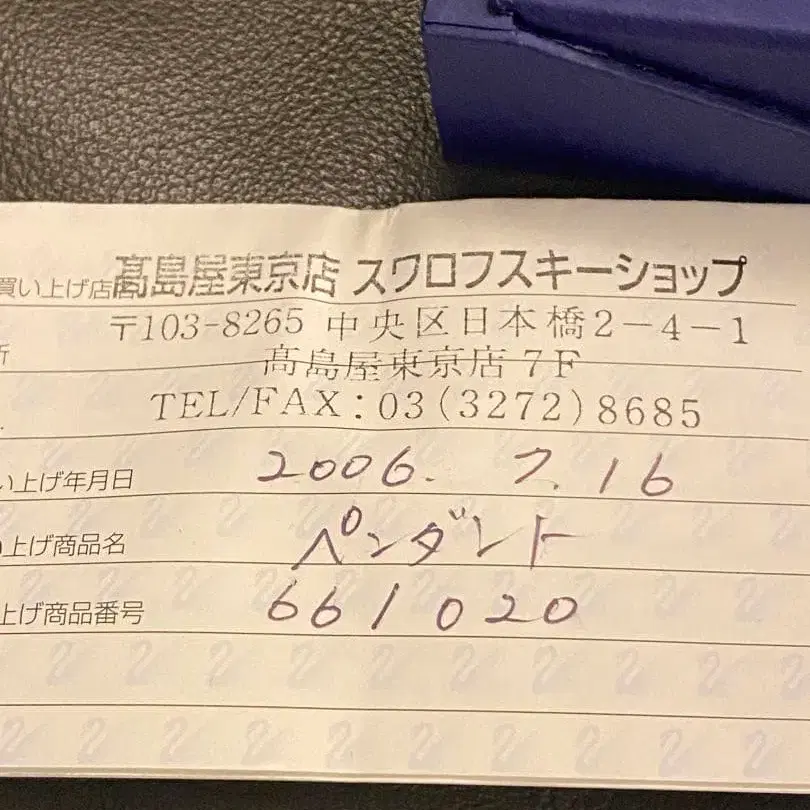 買い上げ店 髙島屋東京店 スワロフスキーショップ
所 〒103-8265 中央区日本橋2-4-1
髙島屋東京店7F
TEL/FAX:03(3272)8685
い上げ年月日 2006. 7. 16
上げ商品名 ペンダント
上げ商品番号 661020